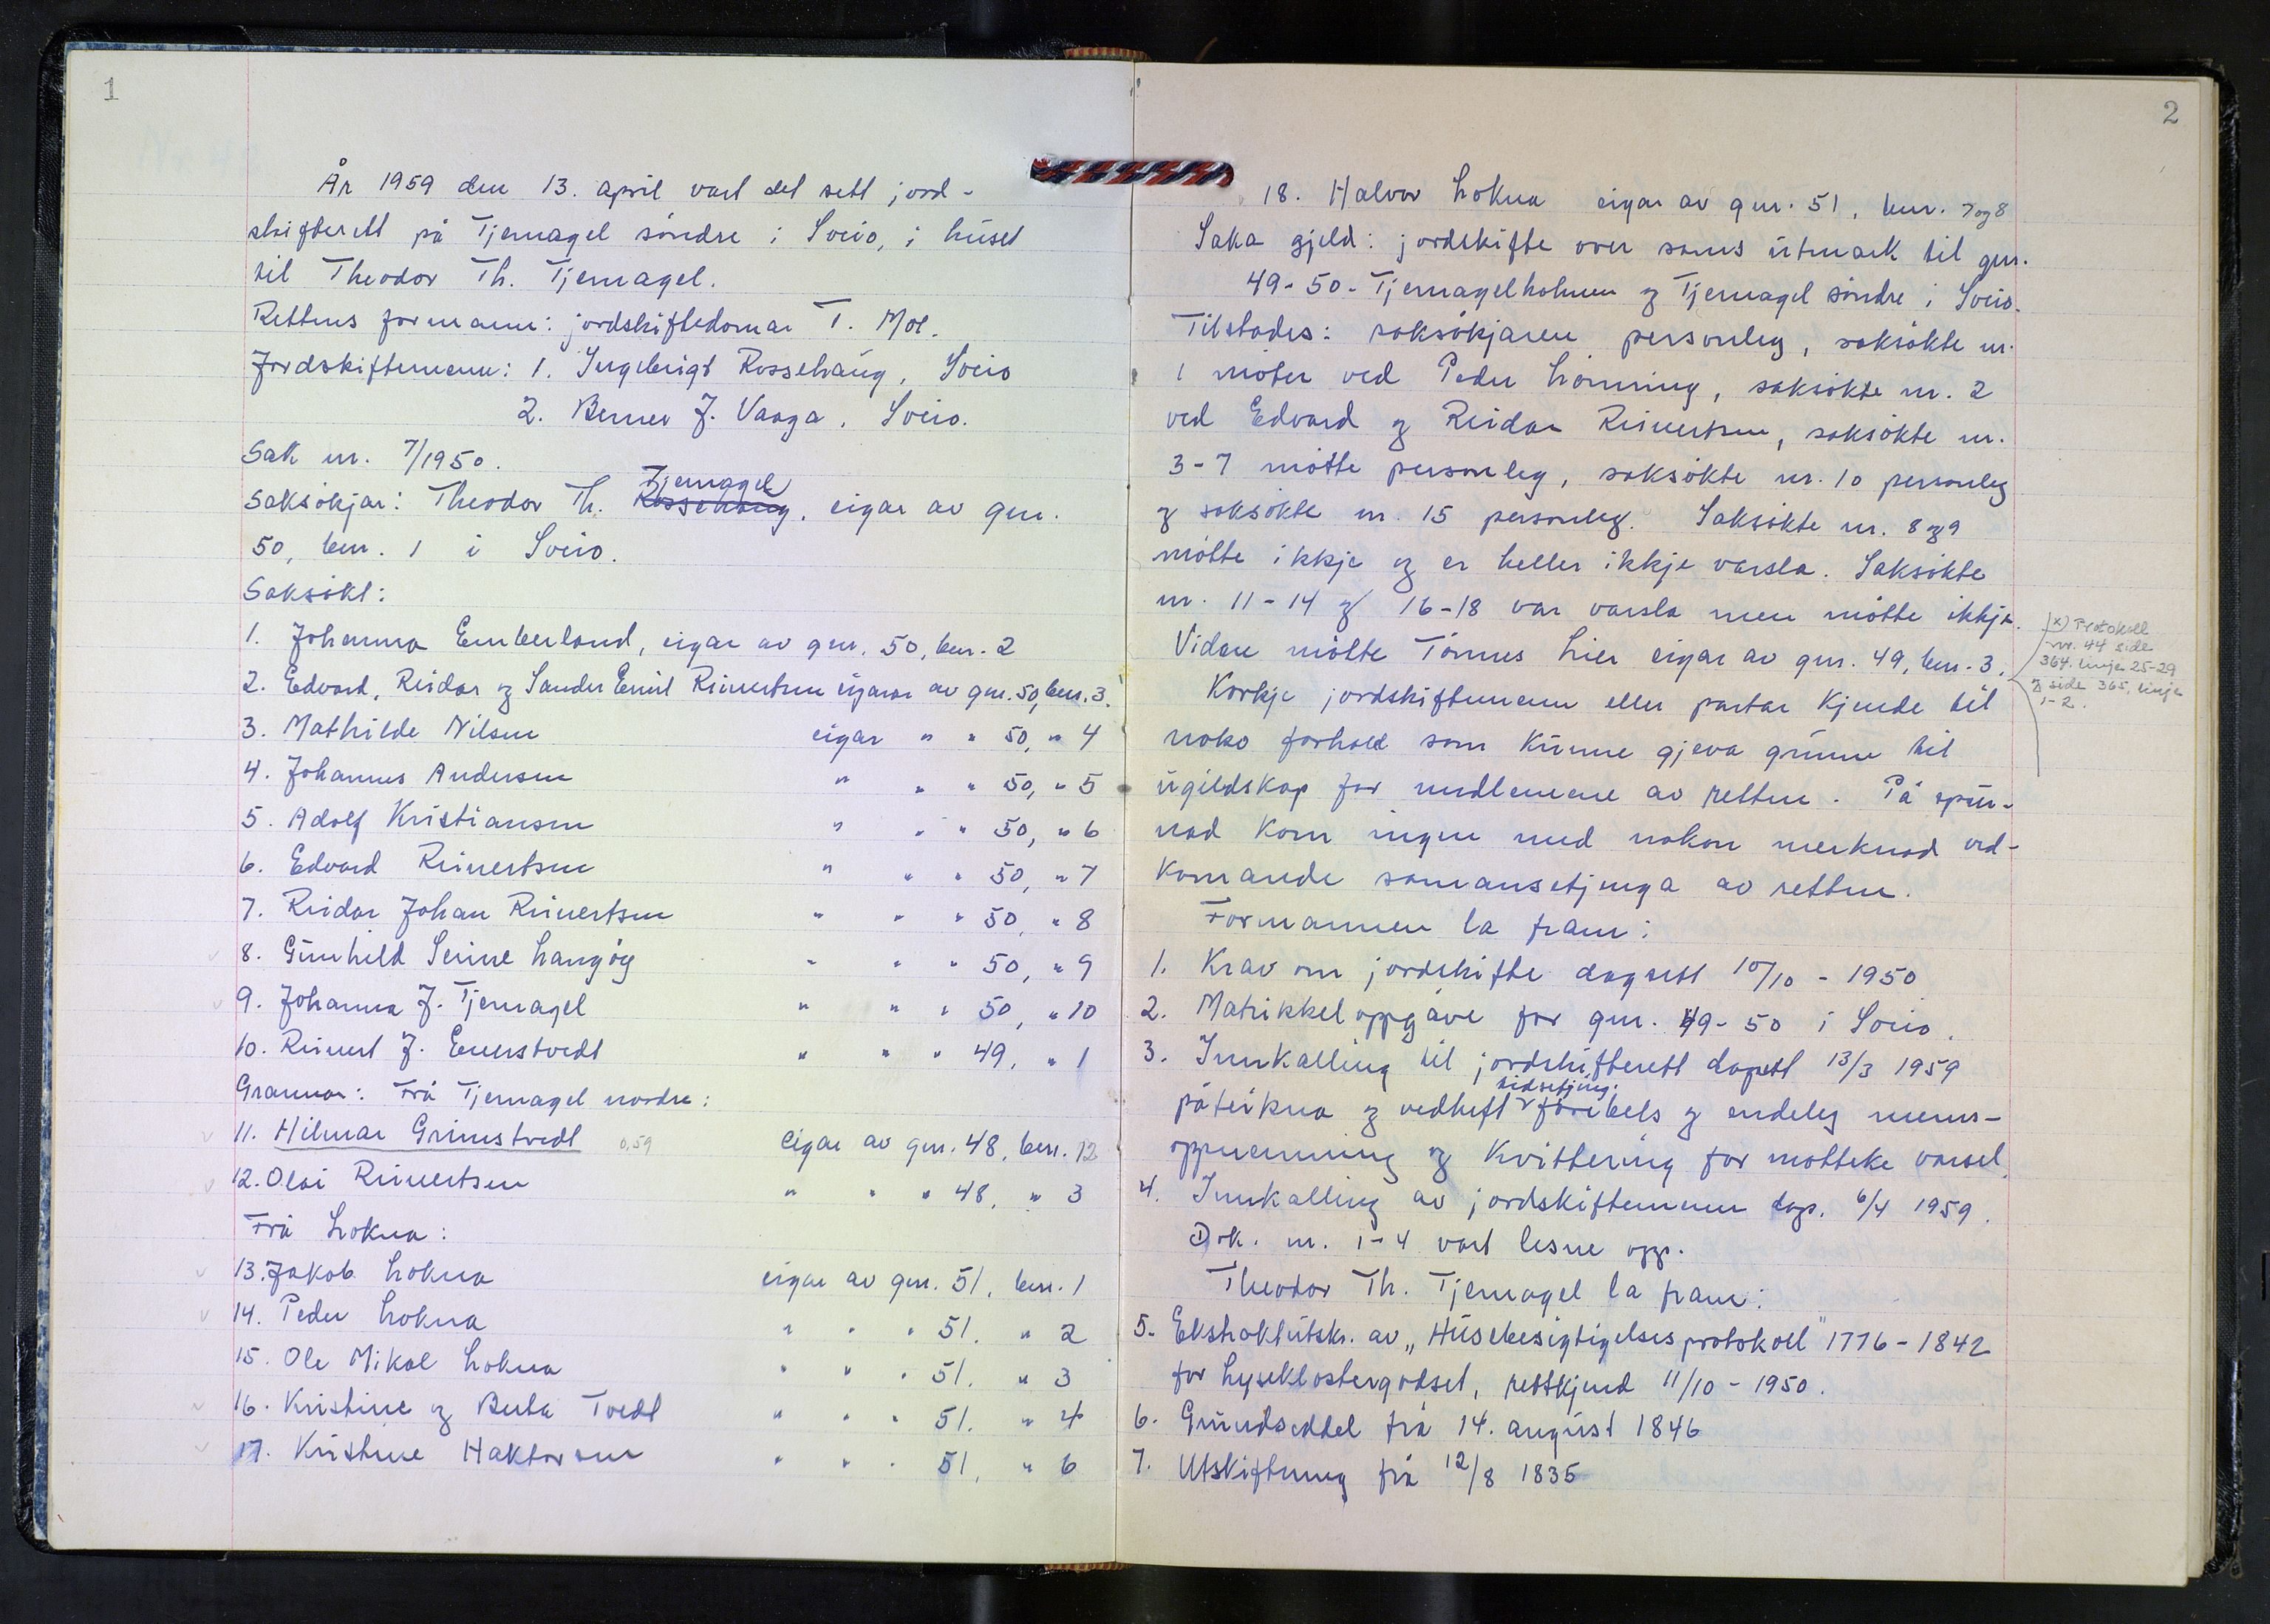 1
År 1959 den 13. april vart det sett jord-
skifterett på Tjernagel söndre i Sveio, i huset
til Theodor Th. Tjernagel.
Rettens formann: jordskiftedomar T. Moe.
Jordskiftemenn: 1. Ingebrigt Rossehaug, Sveio
2. Berner J. Vaaga, Sveio.
Sak nr. 7/1950.
Saksökjar: Theodor Th. Rossehaug Tjernagel, eigar av gnr.
50, bnr. 1 i Sveio.
Saksökt:
1. Johanna Emberland, eigar av gnr. 50, bnr. 2
2. Edvard, Reidar og Sander Emil Reinertsen eigarar av gnr. 50, bnr. 3.
3. Mathilde Nilsen eigar " " 50, " 4
4. Johannes Andersen " " " 50, " 5
5. Adolf Kristiansen " " " 50, " 6
6. Edvard Reinertsen " " " 50, " 7
7. Reidar Johan Reinertsen " " " 50, " 8
8. Gunhild Serine Langöy " " " 50, " 9
9. Johanna J. Tjernagel " " " 50, " 10
10. Reinert J. Enerstvedt " " " 49, " 1
Grannar: Frå Tjernagel nordre:
11. Hilmar Grimstvedt 0,59 eigar av gnr. 48, bnr. 12
12. Olai Reinertsen " " " 48, " 3
Frå Lokna:
13. Jakob Lokna eigar av gnr. 51, bnr. 1
14. Peder Lokna " " " 51, " 2
15. Ole Mikal Lokna " " " 51, " 3
16. Kristine og Berta Tvedt " " " 51, " 4
17. Kristine Haktorsen " " " 51, " 6
2
18. Halvor Lokna eigar av gnr. 51, bnr. 7 og 8
Saka gjeld: jordskifte over sams utmark til gnr.
49-50 - Tjernagelholmen og Tjernagel söndre i Sveio.
Tilstades: saksökjaren personleg, saksökte nr.
1 möter ved Peder Lönning, saksökte nr. 2
ved Edvard og Reidar Reinertsen, saksökte nr.
3-7 mötte personleg, saksökte nr. 10 personleg
og saksökte nr. 15 personleg. Saksökte nr. 8 og 9
mötte ikkje og er heller ikkje varsla. Saksökte
nr. 11-14 og 16-18 var varsla men mötte ikkje.
Vidare mötte Tönnes Lier eigar av gnr. 49, bnr. 3.
x) Protokoll
nr. 44 side
364. linje 25-29
og side 365, linje
1-2.
Korkje jordskiftemenn eller partar kjende til
noko forhold som kunne gjeva grunn til
ugildskap for medlemene av retten. På spur-
nad kom ingen med nokon merknad ved-
komande samansetjinga av retten.
Formannen la fram:
1. Krav om jordskifte dagsett 10/10 - 1950
2. Matrikkeloppgåve for gnr. 49-50 i Sveio.
3. Innkalling til jordskifterett dagsett 13/3 1959
påteikna og vedheft tidsetjing. föribels og endeleg menns-
oppnemning og kvittering for motteke varsel.
4. Innkalling av jordskiftemenn dags. 6/4 1959.
Dok. nr. 1-4 vart lesne opp.
Theodor Th. Tjernagel la fram:
5. Ekstraktutskr. av „Husebesigtigelsesprotokoll" 1776-1842
for Lyseklostergodset, rettkjend 11/10 - 1950.
6. Grundseddel frå 14. august 1846
7. Utskiftning frå 12/8 1835